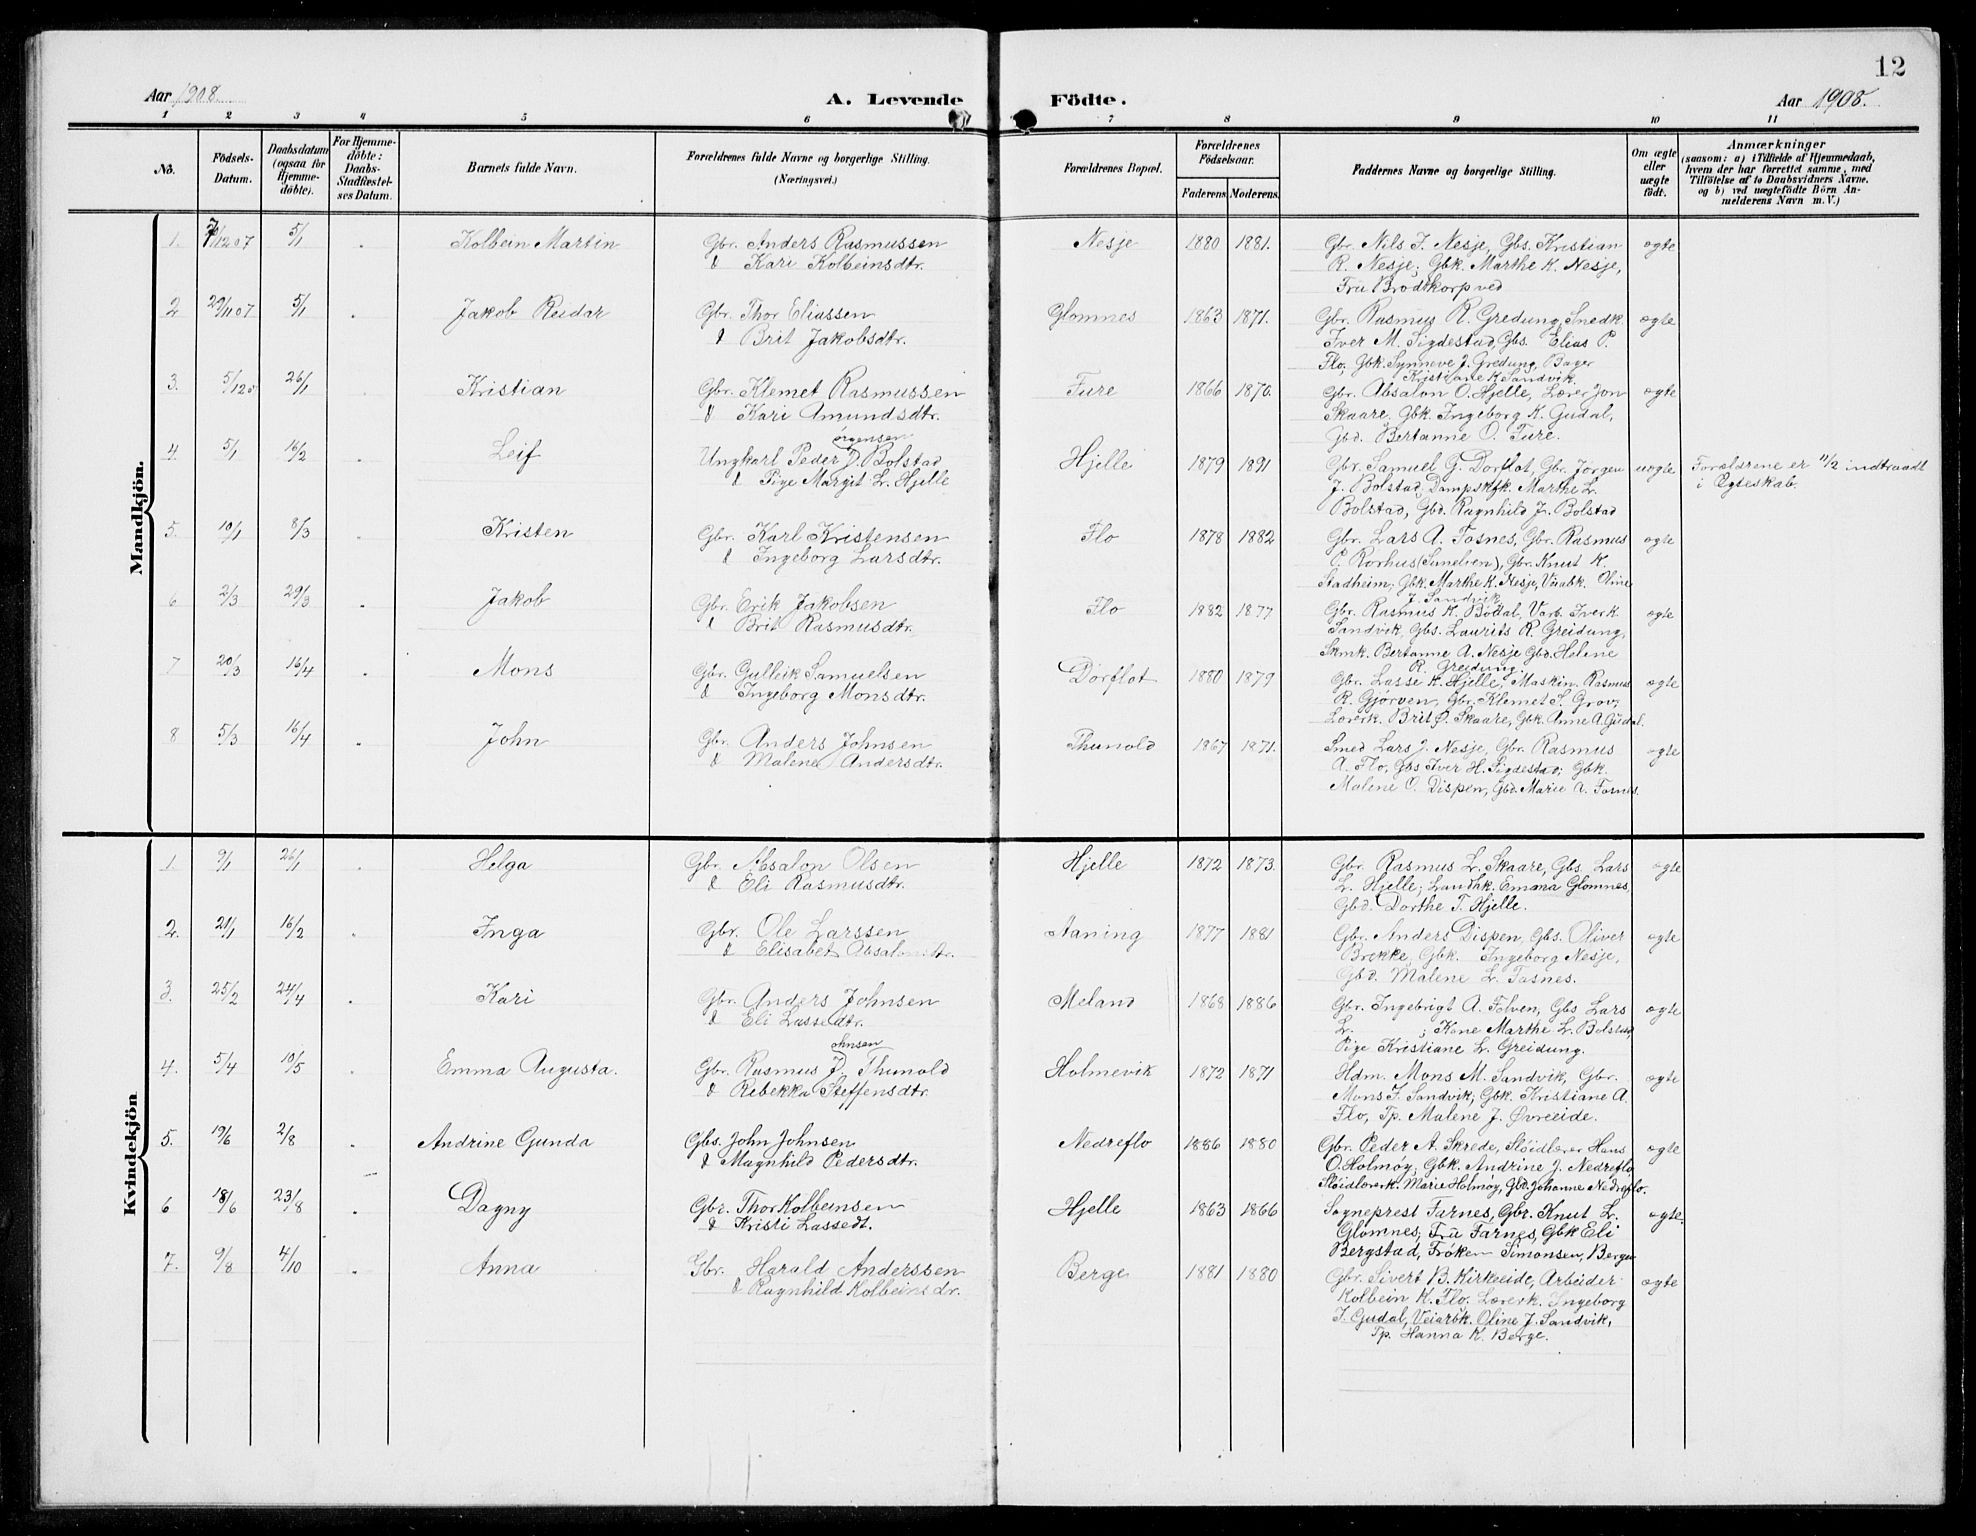 12
Aar 1908.
A. Levende Födte.
Aar 1908.
1 2 3 4 5 6 7 8 9 10 11
No.
Födsels-Datum.
Daabsdatum (ogsaa for Hjemme-döbte).
For Hjemme-döbte: Daabs-Stadfæstelses Datum.
Barnets fulde Navn.
Forældrenes fulde Navne og borgerlige Stilling.
(Næringsvei.)
Forældrenes Bopæl.
Forældrenes Födselsaar.
Faderens. Moderens.
Faddernes Navne og borgerlige Stilling.
Om ægte eller uægte födt.
Anmærkninger
(saasom: a) i Tilfælde af Hjemmedaab,
hvem der har forrettet samme, med
Tilföielse af to Daabsvidners Navne,
og b) ved uægtefödte Börn An-
melderens Navn m. V.)
Mandkjön.
1. 7/12 07 5/1 Kolbein Martin Gbr. Anders Rasmussen Nesje 1880 1881. Gbr. Nils J. Nesje, Gbs. Kristian ægte
& Kari Kolbeinsdtr. R. Nesje; Gbk. Marthe K. Nesje,
Fru Brodtkorp ved
2 29/11 07 5/1 Jakob Reidar Gbr. Thor Eliassen Glomnes 1863 1871. Gbr. Rasmus R. Gredung, Snedk. ægte
& Brit Jakobsdtr. Iver M. Sigdestad, Gbs. Elias P.
Flo, Gbk. Synneve J. Gredung, Bager
Kristiane K. Sandvik.
3. 5/12 0 26/1 Kristian Gbr. Klemet Rasmussen Ture 1866 1870. Gbr. Absalon O. Hjelle, Lærer Jon ægte
& Kari Amundsdtr. Skaare, Gbk. Ingeborg K. Gudal,
Gbd. Bertanne O. Ture.
4. 5/1 16/2 Leif Ungkarl Peder Jørgensen Bolstad Hjelle 1879 1891 Gbr. Samuel G. Dorflot, Gbr. Jörgen uægte Forældrene er 11/2 indtraadt
& Pige Margit L. Hjelle J. Bolstad, Dampskfk. Marthe L. i Ægteskab.
Bolstad, Gbd. Ragnhild J. Bolstad
5. 10/1 8/3 Kristen Gbr. Karl Kristensen Flo 1878 1882 Gbr. Lars A. Tosnes, Gbr. Rasmus ægte
& Ingeborg Larsdtr. P. Rorhus (Sunelven), Gbr. Knut K.
Stadheim; Gbk. Marthe K. Nesje, Oline
J. Sandvik
6 2/3 29/3 Jakob Gbr. Erik Jakobsen Flo 1882 1877 Gbr. Rasmus K. Bödal, Iver K. ægte
& Brit Rasmusdtr. Sandvik, Gbs. Laurits R. Greidung,
Skmk. Bertanne A. Nesje Gbd. Helene
R. Greidung.
7 20/3 16/4 Mons Gbr. Gulleik Samuelsen Dorflot 1880 1879 Gbr. Lasse K. Hjelle, Maskin. Rasmus ægte
& Ingeborg Monsdtr. R. Gjørven, Gbr. Klemet S. Grov,
Lærerk. Brit O. Skaare, Gbk. Anne A. Gudal.
8 5/3 16/4 John Gbr. Anders Johnsen Thunold 1867 1871. Smed Lars J. Nesje, Gbr. Rasmus ægte
& Malene Andersdtr. A. Flo, Gbs Iver H. Sigdestad; Gbk.
Malene O. Dispen, Gbd. Marie A. Tosnes.
Kvindekjön
1. 9/1 26/1 Helga Gbr. Absalon Olsen Hjelle 1872 1873. Gbr. Rasmus L. Skaare, Gbs. Lars ægte
& Eli Rasmusdtr. L. Hjelle; Landhk. Emma Glomnes,
Gbd. Dorthe T. Hjelle.
2. 21/1 16/2 Inga Gbr. Ole Larssen Aaning 1877 1881 Gbr. Anders Dispen, Gbs. Oliver ægte
& Elisabet Absalonsdtr. Brekke, Gbk. Ingeborg Nesje,
Gbd. Malene L. Tosnes.
3. 25/2 24/4 Kari Gbr. Anders Johnsen Meland 1868 1886 Gbr. Ingebrigt A. Folven, Gbs Lars ægte
& Eli Lassedtr. L. ; Kone Marthe L. Bolstad,
Pige Kristiane L. Greidung.
4. 5/4 10/5 Emma Augusta. Gbr. Rasmus Johnsen Thunold Holmevik 1872 1871 Hdm. Mons M. Sandvik, Gbr. ægte
& Rebekka Steffensdtr. Mons J. Sandvik; Gbk. Kristiane A.
Flo, Tp. Malene J. Øvreeide.
5. 19/6 2/8 Andrine Gunda Gbs. John Johnsen Nedreflo 1886 1880 Gbr. Peder A. Skrede, Slöidlærer Hans ægte
& Magnhild Pedersdtr. O. Holmøy; Gbk. Andrine J. Nedreflo
Slöidlærerk. Marie Holmøy, Gbd. Johanne Nedreflo.
6 18/6 23/8 Dagny Gbr. Thor Kolbeinsen Hjelle 1863 1866 Sogneprest Farnes, Gbr. Knut L. ægte.
& Kristi Lassedt. Glomnes; Fru Farnes, Gbk Eli
Bergstad, Frøken Simonsen, Bergen
7. 9/8 4/10 Anna Gbr. Harald Anderssen Berge 1881 1880 Gbr. Sivert B. Kirkeeide, Arbeider ægte
& Ragnhild Kolbeinsdr. Kolbein K. Flo. Lærerk. Ingeborg
J. Gudal, Veiarbk. Oline J. Sandvik,
Tp. Hanna K. Berge.